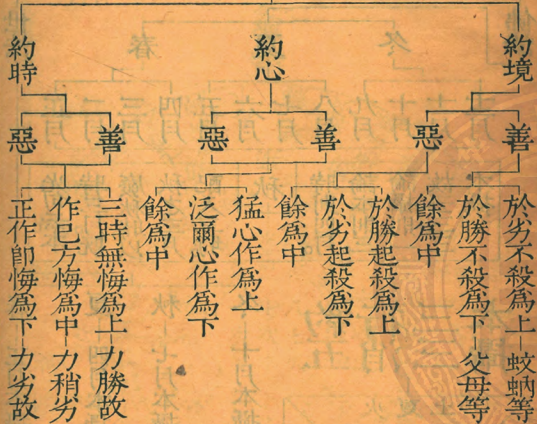 約境
善
於劣不殺爲上－蚊蚋等
於勝不殺爲下－父母等
餘爲中
惡
於勝起殺爲上
於劣起殺爲下
餘爲中
約心
善
惡
猛心作爲上
泛爾心作爲下
餘爲中
約時
善
惡
三時無悔爲上－力勝故
作已方悔爲中－力稍劣
正作卽悔爲下－力劣故